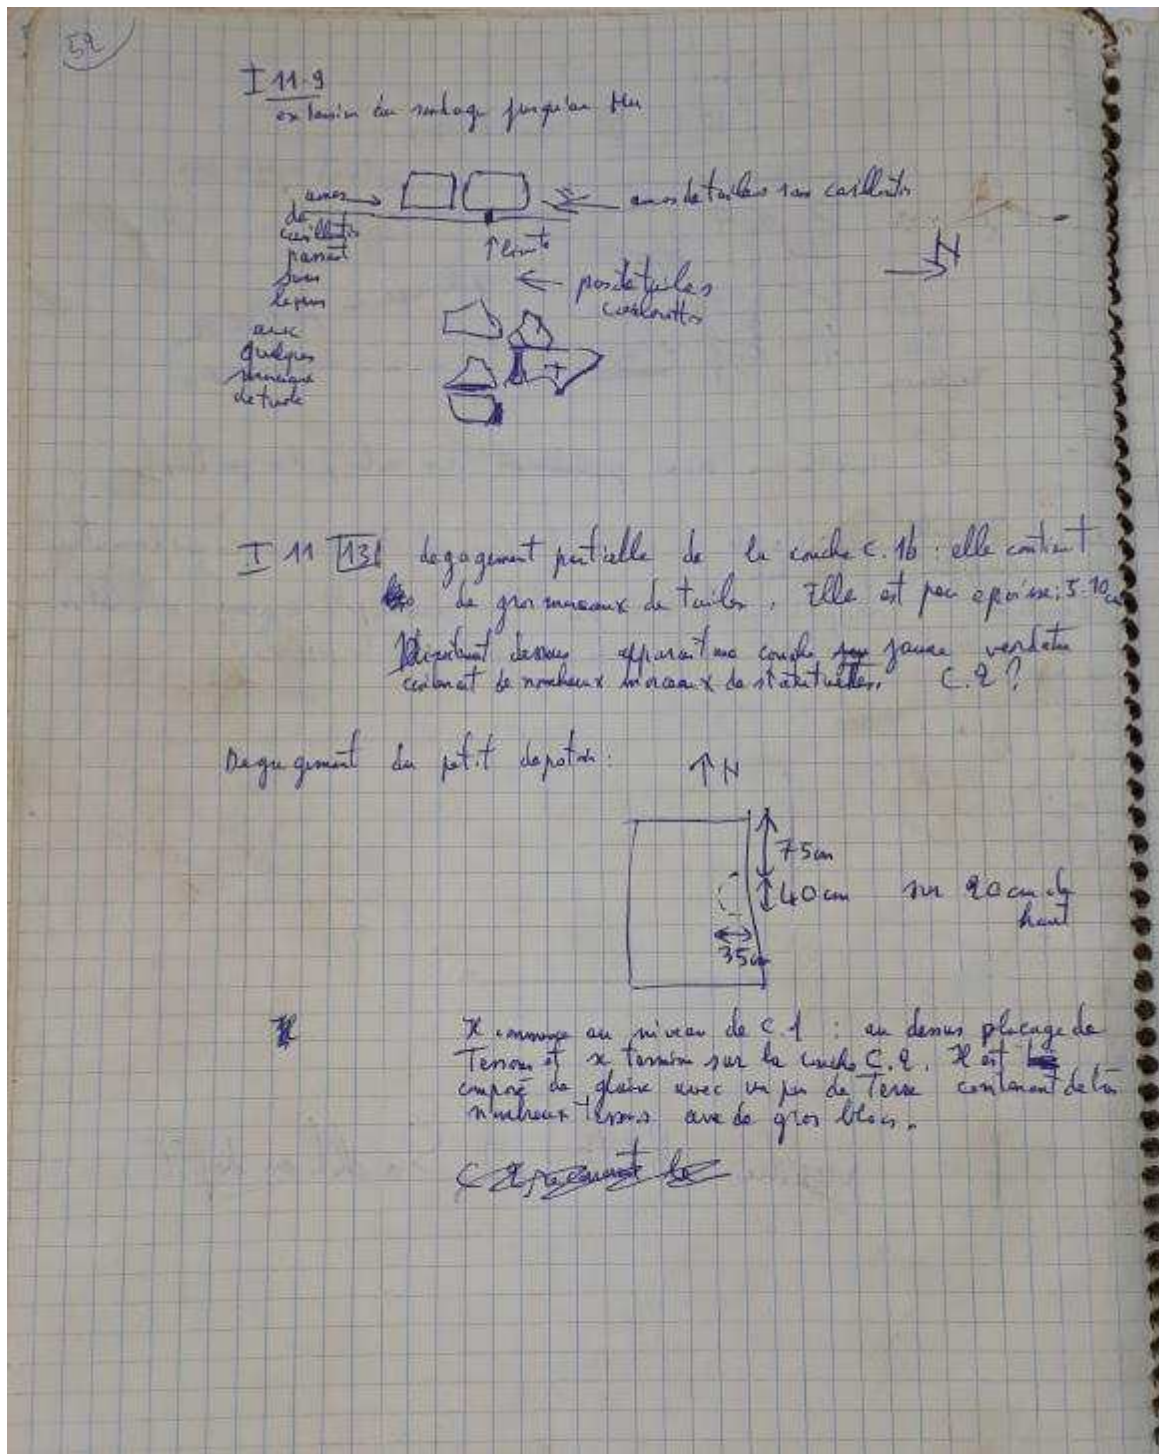 52
I 11-9
extension du sondage jusqu'au Mu
amas
de
cailloutis
passant
sous
le
avec
quelques
morceaux
de tuile
limite
amas de tuiles sans cailloutis
pas de tuiles
cailloutis
N
I 11 13 degagement partielle de la couche C.1b : elle contient
de gros morceaux de tuiles. Elle est peu epaisse: 5-10 cm
dessous apparait une couche jaune verdatre
contenant de nombreux morceaux de C.2?
Degagement du petit depotoir:
N
75cm
40 cm sur 20 cm de
haut
35cm
Il commence au niveau de C.1 : au dessus placage de
Tesson et se termine sur la couche C.2. Il est
composé de glaise avec un peu de Terre contenant de très
nombreux Tessons avec de gros blocs.